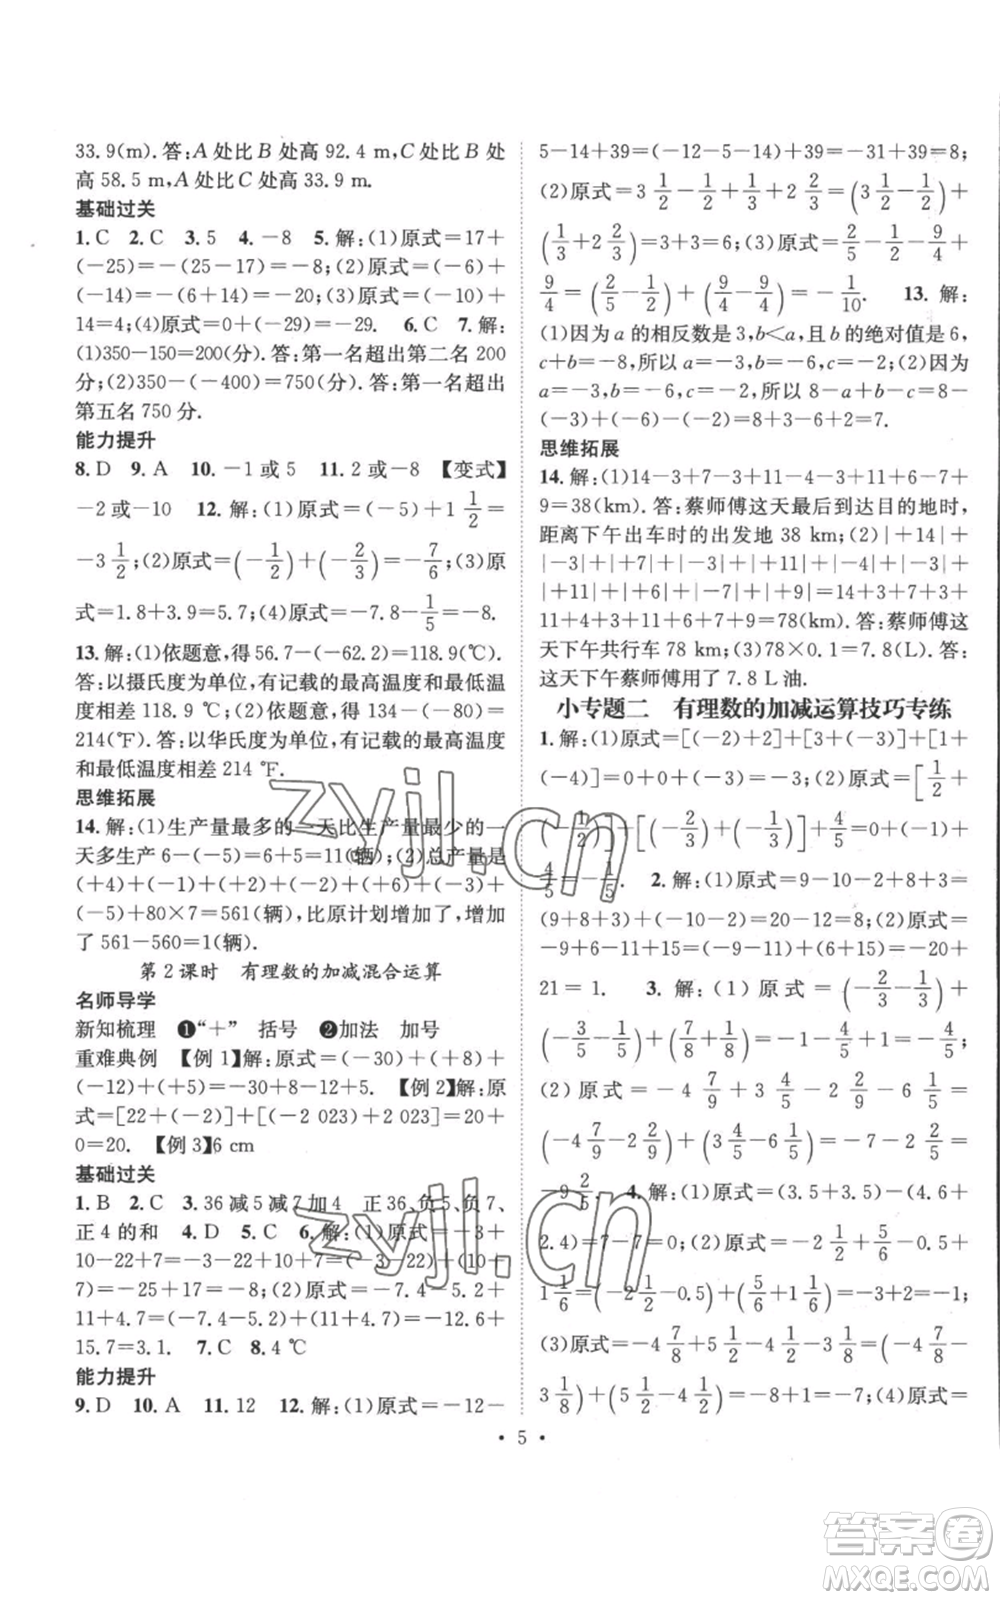 33.9(m). 答:A处比B处高92.4 m,C处比B处
高58.5 m,A处比C处高33.9 m.
基础过关
1. C 2. C 3. 5 4. -8 5. 解:(1)原式=17+
(-25)=-(25-17)=-8;(2)原式=(-6)+
(-14)=-(6+14)=-20;(3)原式=(-10)+
14=4;(4)原式=0+(-29)=-29. 6. C 7. 解:
(1)350-150=200(分). 答:第一名超出第二名200
分;(2)350-(-400)=750(分). 答:第一名超出
第五名750分.
能力提升
8. D 9. A 10. -1或5 11. 2或-8 【变式】
-2或-10 12. 解:(1)原式=(-5)+1 1/2=
-3 1/2;(2)原式=(-1/2)+(-2/3)=-7/6;(3)原
式=1.8+3.9=5.7;(4)原式=-7.8-1/5=-8.
13. 解:(1)依题意,得56.7-(-62.2)=118.9(℃).
答:以摄氏度为单位,有记载的最高温度和最低温度
相差118.9 ℃;(2)依题意,得134-(-80)=
214(℉). 答:以华氏度为单位,有记载的最高温度
和最低温度相差214 ℉.
思维拓展
14. 解:(1)生产量最多的一天比生产量最少的一
天多生产6-(-5)=6+5=11(辆);(2)总产量是
(+4)+(-1)+(+2)+(-2)+(+6)+(-3)+
(-5)+80×7=561(辆),比原计划增加了,增加
了561-560=1(辆).
第2课时 有理数的加减混合运算
名师导学
新知梳理 ❶“+” 括号 ❷加法 加号
重难典例 【例1】解:原式=(-30)+(+8)+
(-12)+(+5)=-30+8-12+5. 【例2】解:原
式=[22+(-2)]+[(-2 023)+2 023]=20+
0=20. 【例3】6 cm
基础过关
1. B 2. C 3. 36减5减7加4 正36、负5、负7、
正4的和 4. D 5. C 6. 解:(1)原式=-3+
10-22+7=(-3-22)+(10+
7)=-25+17=-8;(2)原式=-7.4-5.2+
11+4.7=(-7.4-5.2)+(11+4.7)=-12.6+
15.7=3.1. 7. C 8. 4 ℃
能力提升
9. D 10. A 11. 12 12. 解:(1)原式=-12-
5-14+39=(-12-5-14)+39=-31+39=8;
(2)原式=3 1/2-1/2+1/3+2 2/3=(3 1/2-1/2)+
(1/3+2 2/3)=3+3=6;(3)原式=2/5-1/2-9/4+
9/4=(2/5-1/2)+(9/4-9/4)=-1/10. 13. 解:
(1)因为a的相反数是3,b<a,且b的绝对值是6,
c+b=-8,所以a=-3,b=-6,c=-2;(2)因为
a=-3,b=-6,c=-2,所以8-a+b-c=8-
(-3)+(-6)-(-2)=8+3-6+2=7.
思维拓展
14. 解:(1)14-3+7-3+11-4-3+11+6-7+
9=38(km). 答:蔡师傅这天最后到达目的地时,
距离下午出车时的出发地38 km;(2)|+14|+
|-3|+|+7|+|-3|+|+11|+|-4|+|-3|+
|+11|+|+6|+|-7|+|+9|=14+3+7+3+
11+4+3+11+6+7+9=78(km). 答:蔡师傅这
天下午共行车78 km;(3)78×0.1=7.8(L). 答:
这天下午蔡师傅用了7.8 L油.
小专题二 有理数的加减运算技巧专练
1. 解:(1)原式=[(-2)+2]+[3+(-3)]+[1+
(-4)]=0+0+(-3)=-3;(2)原式=[1/2+
1/2)]+[(-2/3)+(-1/3)]+4/5=0+(-1)+
4/5=-1/5. 2. 解:(1)原式=9-10-2+8+3=
(9+8+3)+(-10-2)=20-12=8;(2)原式=
-9+6-11+15=(-9-11)+(6+15)=-20+
21=1. 3. 解:(1)原式=(-2/3-1/3)+
(-3/5-2/5)+(7/8+1/8)=-1-1+1=-1;
(2)原式=-4 7/9+3 5/6-2 2/9-6 1/5=
(-4 7/9-2 2/9)+(3 4/5-6 1/5)=-7-2 2/5=
-9 2/5. 4. 解:(1)原式=(3.5+3.5)-(4.6+
2.4)=7-7=0;(2)原式=-2 1/2+5/6-0.5+
1 1/6=(-2 1/2-0.5)+(5/6+1 1/6)=-3+2=-1;
(3)原式=-4 7/8+5 1/2-4 1/2-3 1/8=(-4 7/8-
3 1/8)+(5 1/2-4 1/2)=-8+1=-7;(4)原式=
• 5 •
zyjl.cn
zyjl.cn
答案卷
MXQE.COM